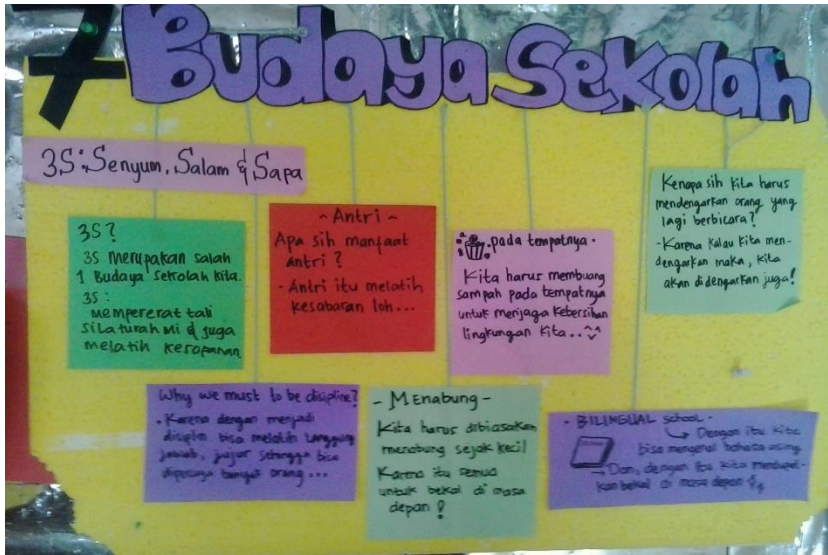 7 Budaya Sekolah
3S : Senyum, Salam & Sapa
3S?
3S merupakan salah
1 Budaya sekolah kita.
3S :
mempererat tali
silaturahmi & juga
melatih kesopanan
~ Antri ~
Apa sih manfaat
antri ?
- Antri itu melatih
kesabaran loh...
pada tempatnya.
Kita harus membuang
sampah pada tempatnya
untuk menjaga kebersihan
lingkungan kita..
Kenapa sih kita harus
mendengarkan orang yang
lagi berbicara?
- Karena kalau kita men-
dengarkan maka, kita
akan didengarkan juga!
Why we must to be disipline?
• Karena dengan menjadi
disiplin bisa melatih tanggung
jawab, jujur sehingga bisa
dipercaya banyak orang...
- Menabung -
Kita harus dibiasakan
menabung sejak kecil
Karena itu semua
untuk bekal di masa
depan !
• BILINGUAL school •
→ Dengan itu kita
bisa mengenal bahasa asing
→ Dan, dengan itu kita mendapat-
kan bekal di masa depan